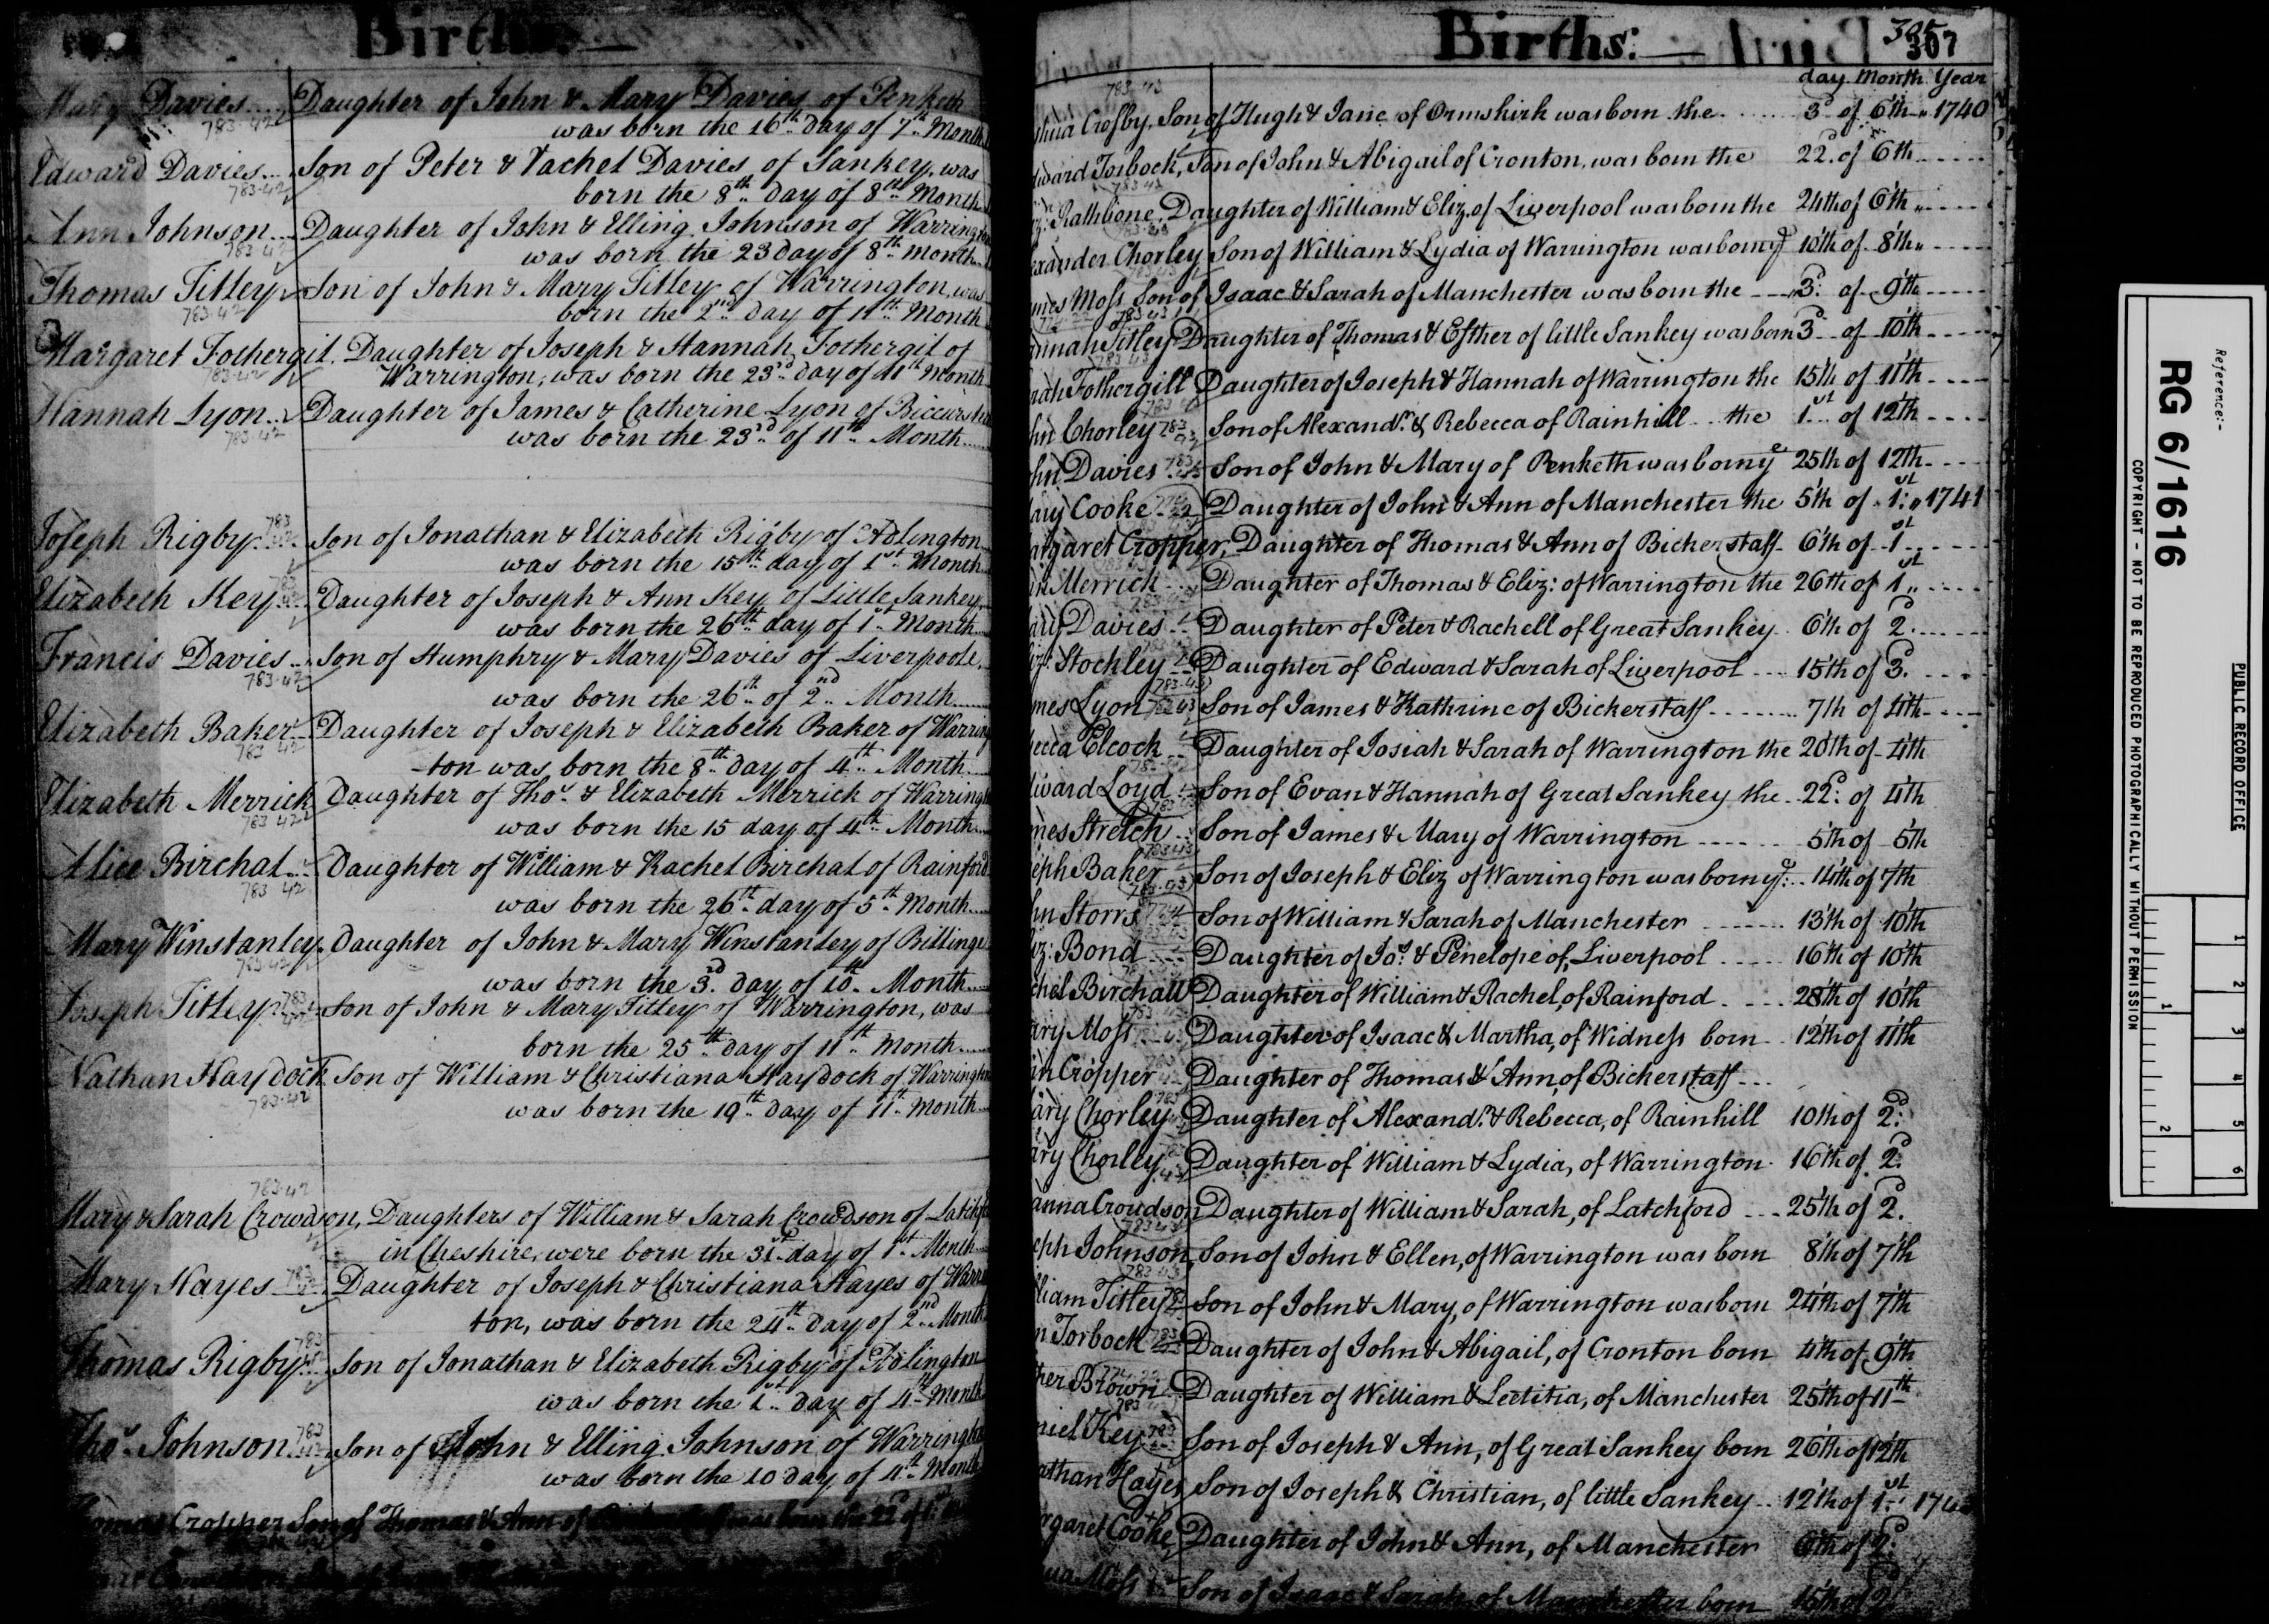 Births.
Mary Davies.... Daughter of John & Mary Davies of Penketh
783-42
was born the 16th day of 7th Month
Edward Davies... Son of Peter & Rachel Davies of Sankey, was
783-42
born the 8th day of 8th Month
Ann Johnson... Daughter of John & Elling Johnson of Warrington
783-42
was born the 23 day of 8th month
Thomas Titley Son of John & Mary Titley of Warrington, was
783-42
born the 2nd day of 11th Month
Margaret Fothergil. Daughter of Joseph & Hannah Fothergil of
783-42
Warrington, was born the 23rd day of 11th Month
Hannah Lyon... Daughter of James & Catherine Lyon of
783-42
was born the 23rd of 11th Month
Joseph Rigby... Son of Jonathan & Elizabeth Rigby of Adlington
was born the 15th day of 1st Month
Elizabeth Key... Daughter of Joseph & Ann Key of Little Sankey
was born the 26th day of 1st Month
Francis Davies... Son of Humphry & Mary Davies of Liverpoole,
783-42
was born the 26th of 2nd Month
Elizabeth Baker Daughter of Joseph & Elizabeth Baker of Warring
783 42
-ton was born the 8th day of 4th Month
Elizabeth Merrick Daughter of Thos. & Elizabeth Merrick of Warringt
783 42
was born the 15 day of 4th Month
Alice Birchal... Daughter of William & Rachel Birchal of Rainford
783 42
was born the 26th day of 5th Month
Mary Winstanley Daughter of John & Mary Winstanley of Billinge
783-42
was born the 3d. day of 10th Month
Joseph Titley Son of John & Mary Titley of Warrington, was
born the 25th day of 11th Month
Nathan Haydock Son of William & Christiana Haydock of Warrington
783-42
was born the 19th day of 11th Month
783-42
Mary & Sarah Crowdson, Daughters of William & Sarah Crowdson of Latchf
in Cheshire, were born the 31st day of 1st Month
Mary Hayes Daughter of Joseph & Christiana Hayes of Warr
ton, was born the 24th day of 2nd Month
Thomas Rigby Son of Jonathan & Elizabeth Rigby of Adlington
was born the 1st day of 4th Month
Thos. Johnson Son of John & Elling Johnson of Warrington
was born the 10 day of 4th Month
Cropper Son of Thomas & Ann of was born the 22d of 1st
Births:
305
307
day Month Year
783 43
shua Crosby, Son of Hugh & Jane of Ormskirk was born the 3d of 6th 1740
dward Torbock, Son of John & Abigail of Cronton, was born the 22d. of 6th
z: Rathbone, Daughter of William & Eliz. of Liverpool was born the 24th of 6th
xander Chorley Son of William & Lydia of Warrington was born ye 10th of 8th
mes Moss Son of Isaac & Sarah of Manchester was born the 3d: of 9th
annah Titley Daughter of Thomas & Esther of little Sankey was born 3d of 10th
rah Fothergill Daughter of Joseph & Hannah of Warrington the 15th of 11th
hn Chorley Son of Alexandr. & Rebecca of Rainhill the 1st of 12th
hn Davies Son of John & Mary of Penketh was born ye 25th of 12th
ary Cooke Daughter of John & Ann of Manchester the 5th of 1st: 1741
argaret Cropper, Daughter of Thomas & Ann of Bickerstaff 6th of 1st
Merrick Daughter of Thomas & Eliz: of Warrington the 26th of 1st
ary Davies Daughter of Peter & Rachell of Great Sankey 6th of 2d.
Stockley Daughter of Edward & Sarah of Liverpool 15th of 3d.
mes Lyon Son of James & Kathrine of Bickerstaff 7th of 4th
becca Elcock Daughter of Josiah & Sarah of Warrington the 20th of 4th
dward Loyd Son of Evan & Hannah of Great Sankey the 22d: of 4th
mes Stretch Son of James & Mary of Warrington 5th of 5th
eph Baker Son of Joseph & Eliz of Warrington was born ye: 14th of 7th
hn Storrs Son of William & Sarah of Manchester 13th of 10th
iz: Bond Daughter of Jos. & Penelope of, Liverpool 16th of 10th
chel Birchall Daughter of William & Rachel, of Rainford 28th of 10th
ary Moss Daughter of Isaac & Martha, of Widness born 12th of 11th
Cropper Daughter of Thomas & Ann, of Bickerstaff
ary Chorley Daughter of Alexandr. & Rebecca, of Rainhill 10th of 2d:
ary Chorley Daughter of William & Lydia, of Warrington 16th of 2d.
anna Croudson Daughter of William & Sarah, of Latchford 25th of 2d.
eph Johnson, Son of John & Ellen, of Warrington was born 8th of 7th
lliam Titley Son of John & Mary, of Warrington was born 24th of 7th
n Torbock Daughter of John & Abigail, of Cronton born 4th of 9th
her Brown Daughter of William & Leetitia, of Manchester 25th of 11th
niel Key Son of Joseph & Ann, of Great Sankey born 26th of 12th
athan Hayes Son of Joseph & Christian, of little Sankey 12th of 1st: 174
rgaret Cooke Daughter of John & Ann, of Manchester 6th of 2d:
ua Moss Son of Isaac & Sarah of Manchester born 15th of 2d
PUBLIC RECORD OFFICE
Reference:-
RG 6/1616
COPYRIGHT - NOT TO BE REPRODUCED PHOTOGRAPHICALLY WITHOUT PERMISSION
1 2 3 4 5 6
1 2